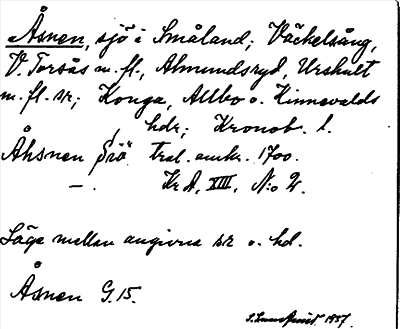 Åsnen, sjö i Småland; Väckelsång,
V. Torsås m. fl., Almundsryd, Urshult
m. fl. sr; Konga, Allbo o. Kinnevalds
hdr; Kronob. l.
Åhsnen Siö tral. omkr. 1700.
—. Kr A, XIII, N:o 2.
Läge mellan angivna sr o. hd.
Åsnen G. 15.
1957.